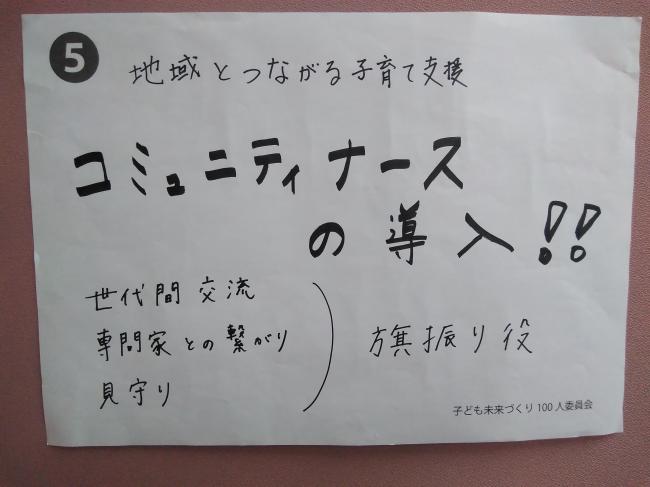 5
地域とつながる子育て支援
コミュニティナース
の導入!!
世代間交流
専門家との繋がり
見守り
旗振り役
子ども未来づくり100人委員会